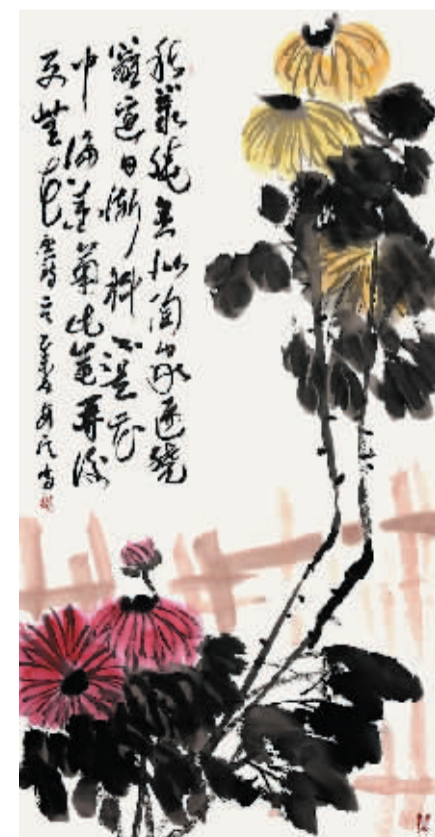 秋叢繞舍似陶家遍繞
籬邊日漸斜不是花
中偏愛菊此花開盡
更無花 唐詩一首